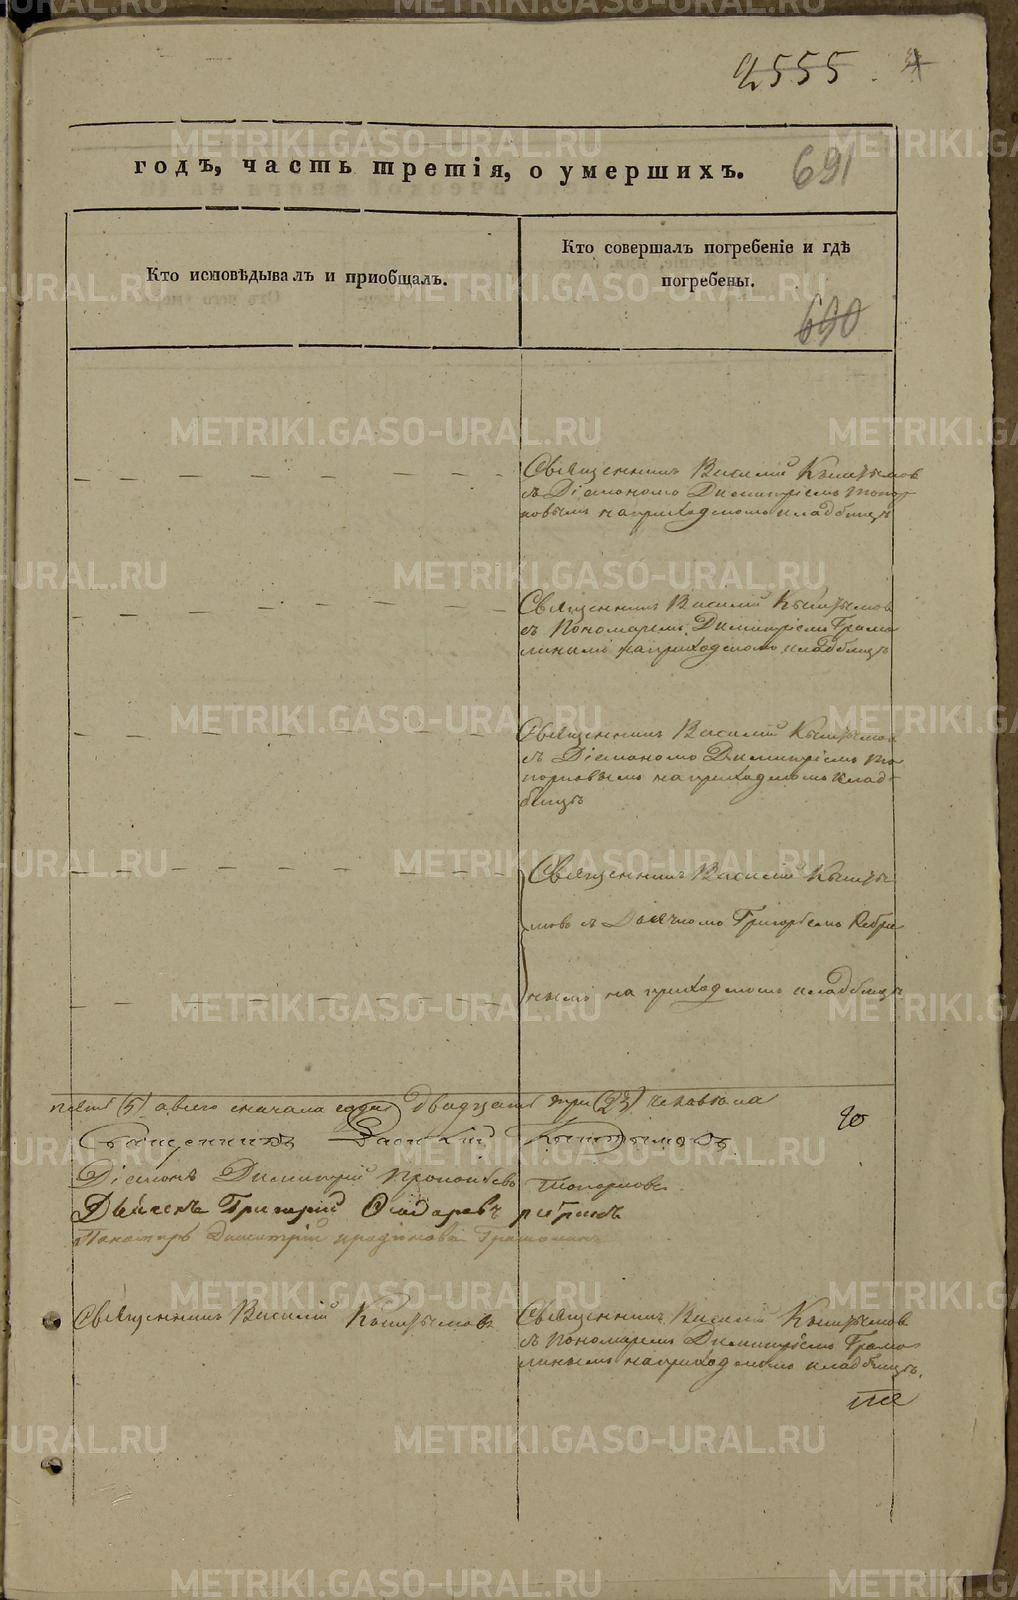 2555. 4
годъ, часть третія, о умершихъ. 691
Кто исповѣдывалъ и пріобщалъ.
Кто совершалъ погребеніе и гдѣ
погребены.
690
Священникъ Василій Кыштымов
съ Діакономъ Димитріемъ Топор
ковымъ на приходскомъ кладбищѣ
Священникъ Василій Кыштымов
съ Пономаремъ Димитріемъ Грамо
линымъ на приходскомъ кладбищѣ
Священникъ Василій Кыштымов
съ Діакономъ Димитріемъ То
порковымъ на приходскомъ клад-
бищѣ
Священникъ Василій Кышты
мовъ съ Дьячкомъ Григорьемъ Ребри
нымъ на приходскомъ кладбищѣ
пять (5) а всего сначала года двадцать три (23) человека
Священникъ Василій Кыштымовъ
Діаконъ Димитрій Топорковъ
Дьячекъ Григорій
Пономарь Димитрій
Священникъ Василій Кыштымовъ
Священникъ Василій Кыштымов
съ Пономаремъ Димитріемъ Грамо
линымъ на приходскомъ кладбищѣ.
METRIKI.GASO-URAL.RU